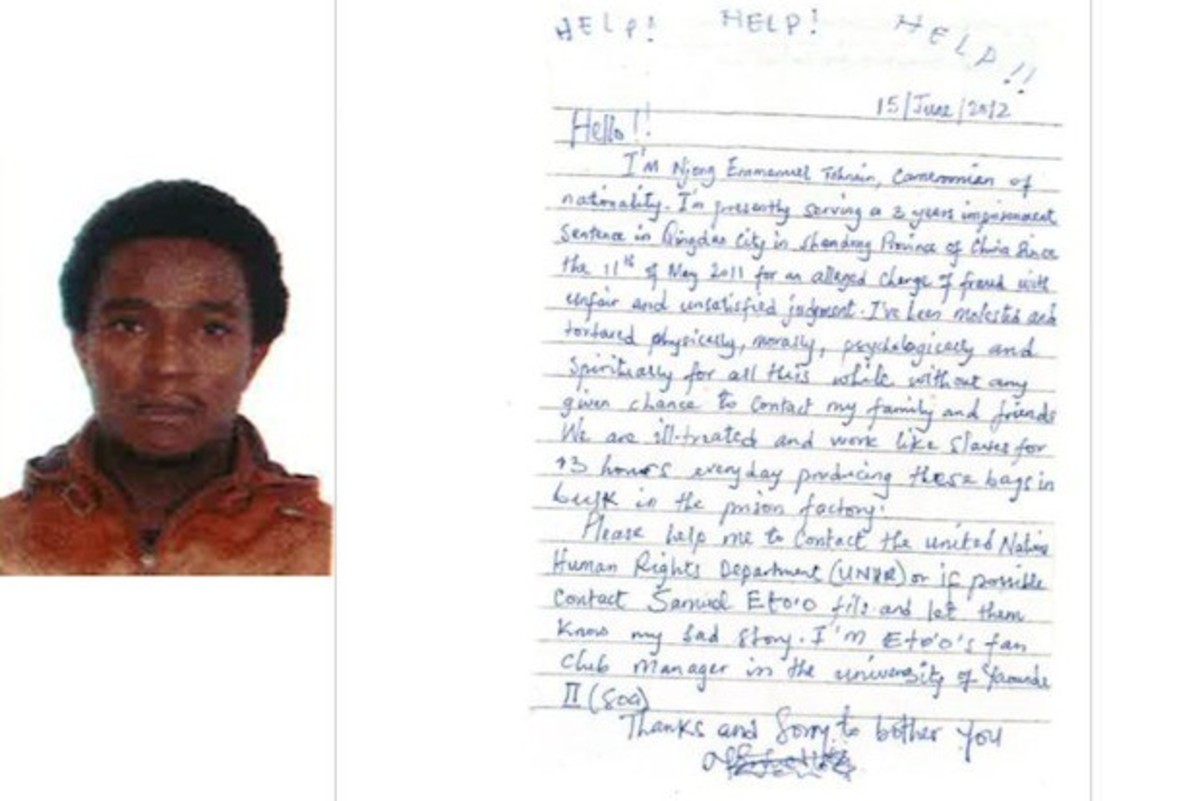 HELP! HELP! HELP!!
15/June/2012
Hello!!
I'm Njong Emmanuel Tohnain, Cameroonian of
nationality. I'm presently serving a 3 years imprisonment
sentence in Qingdao City in Shandong Province of China since
the 11th of May 2011 for an alleged charge of fraud with
unfair and unsatisfied judgment. I've been molested and
tortured physically, morally, psychologically and
spiritually for all this while without any
given chance to contact my family and friends
We are ill-treated and work like slaves for
13 hours everyday producing these bags in
bulk in the prison factory.
Please help me to contact the united Nations
Human Rights Department (UNHR) or if possible
contact Samuel Eto'o fils and let them
know my sad story. I'm Eto'o's fan
club manager in the university of Yaounde
II (Soa)
Thanks and Sorry to bother You